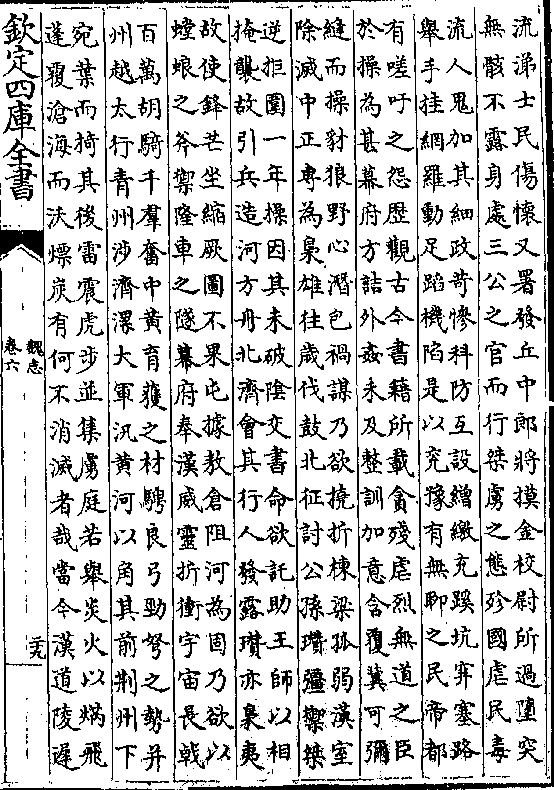 流涕士民傷懷又署發丘中郎將摸金校尉所過墮突
無骸不露身處三公之官而行桀虜之態殄國虐民毒
流人鬼加其細政苛慘科防互設繒繳充蹊坑穽塞路
舉手挂網羅動足蹈機陷是以兖豫有無聊之民帝都
有嗟吁之怨歷觀古今書籍所載貪殘虐烈無道之臣
於操為甚幕府方詰外姦未及整訓加意含覆冀可彌
縫而操豺狼野心潛包禍謀乃欲撓折棟梁孤弱漢室
除滅中正專為梟雄往歲伐鼓北征討公孫瓚彊禦桀
逆拒圍一年操因其未破陰交書命欲託助王師以相
掩襲故引兵造河方舟北濟會其行人發露瓚亦梟夷
故使鋒芒坐縮厥圖不果屯據教倉阻河為固乃欲以
螳蜋之斧禦隆車之隧幕府奉漢威靈折衝宇宙長戟
百萬胡騎千羣奮中黃育獲之材騁良弓勁弩之勢并
州越太行青州涉濟漯大軍汎黃河以角其前荆州下
宛葉而掎其後雷震虎步並集虜庭若舉炎火以焫飛
蓬覆滄海而沃熛炭有何不消滅者哉當今漢道陵遲
欽定四庫全書
魏志
卷六
二十九